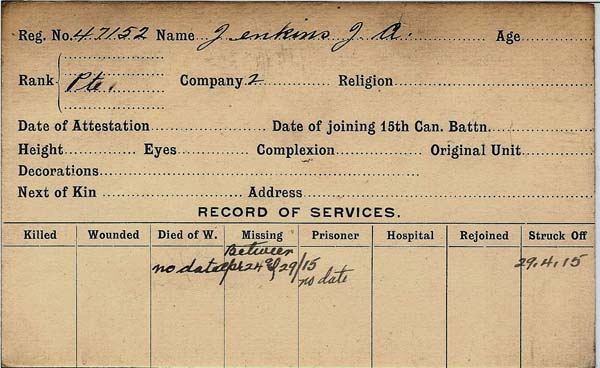 Reg. No. 47152 Name Jenkins J A. Age
Rank Pte. Company 2 Religion
Date of Attestation Date of joining 15th Can. Battn.
Height Eyes Complexion Original Unit
Decorations
Next of Kin Address
RECORD OF SERVICES.
Killed Wounded Died of W. Missing Prisoner Hospital Rejoined Struck Off
Between
no date apr 24 & 29/15 29.4.15
no date